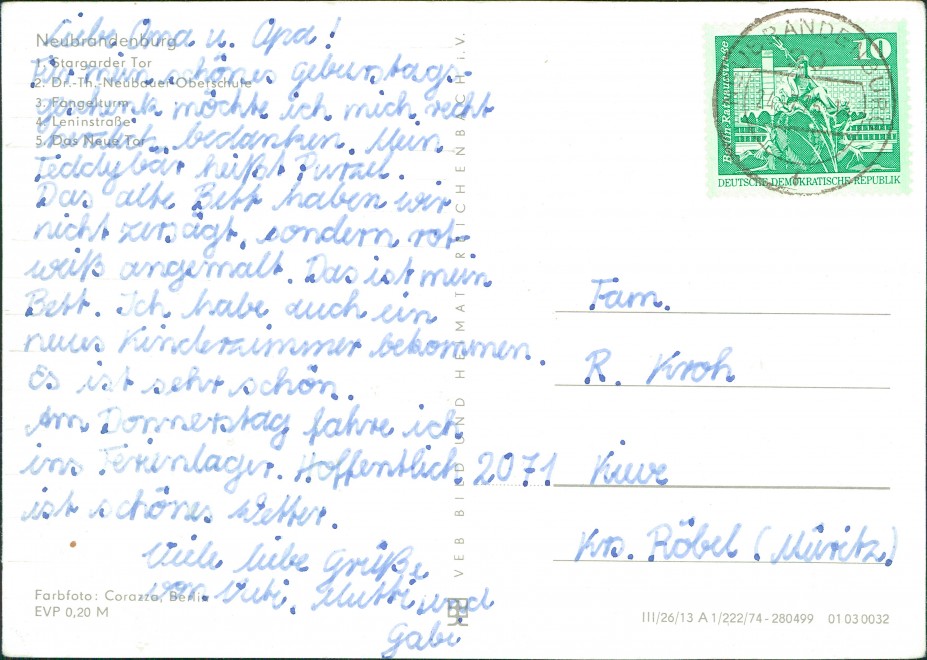 Liebe Oma u. Opa!
Für ein schönes Geburtstags-
geschenk möchte ich mich recht
herzlich bedanken. Mein
Teddybär heißt Purzel.
Das alte Bett haben wir
nicht zersägt, sondern rot-
weiß angemalt. Das ist mein
Bett. Ich habe auch ein
neues Kinderzimmer bekommen.
Es ist sehr schön.
Am Donnerstag fahre ich
ins Ferienlager. Hoffentlich
ist schönes Wetter.
Viele liebe Grüße
von Vati, Mutti und
Gabi
Neubrandenburg
1. Stargarder Tor
2. Dr.-Th.-Neubauer-Oberschule
3. Fangelturm
4. Leninstraße
5. Das Neue Tor
Farbfoto: Corazza, Berlin
EVP 0,20 M
VEB BILD UND HEIMAT REICHENBACH i. V.
10
Berlin Rathausstraße
DEUTSCHE DEMOKRATISCHE REPUBLIK
NEUBRANDENBURG
Fam.
R. Kroh
2071 Kieve
Krs. Röbel (Müritz)
III/26/13 A 1/222/74 - 280499 01 03 0032